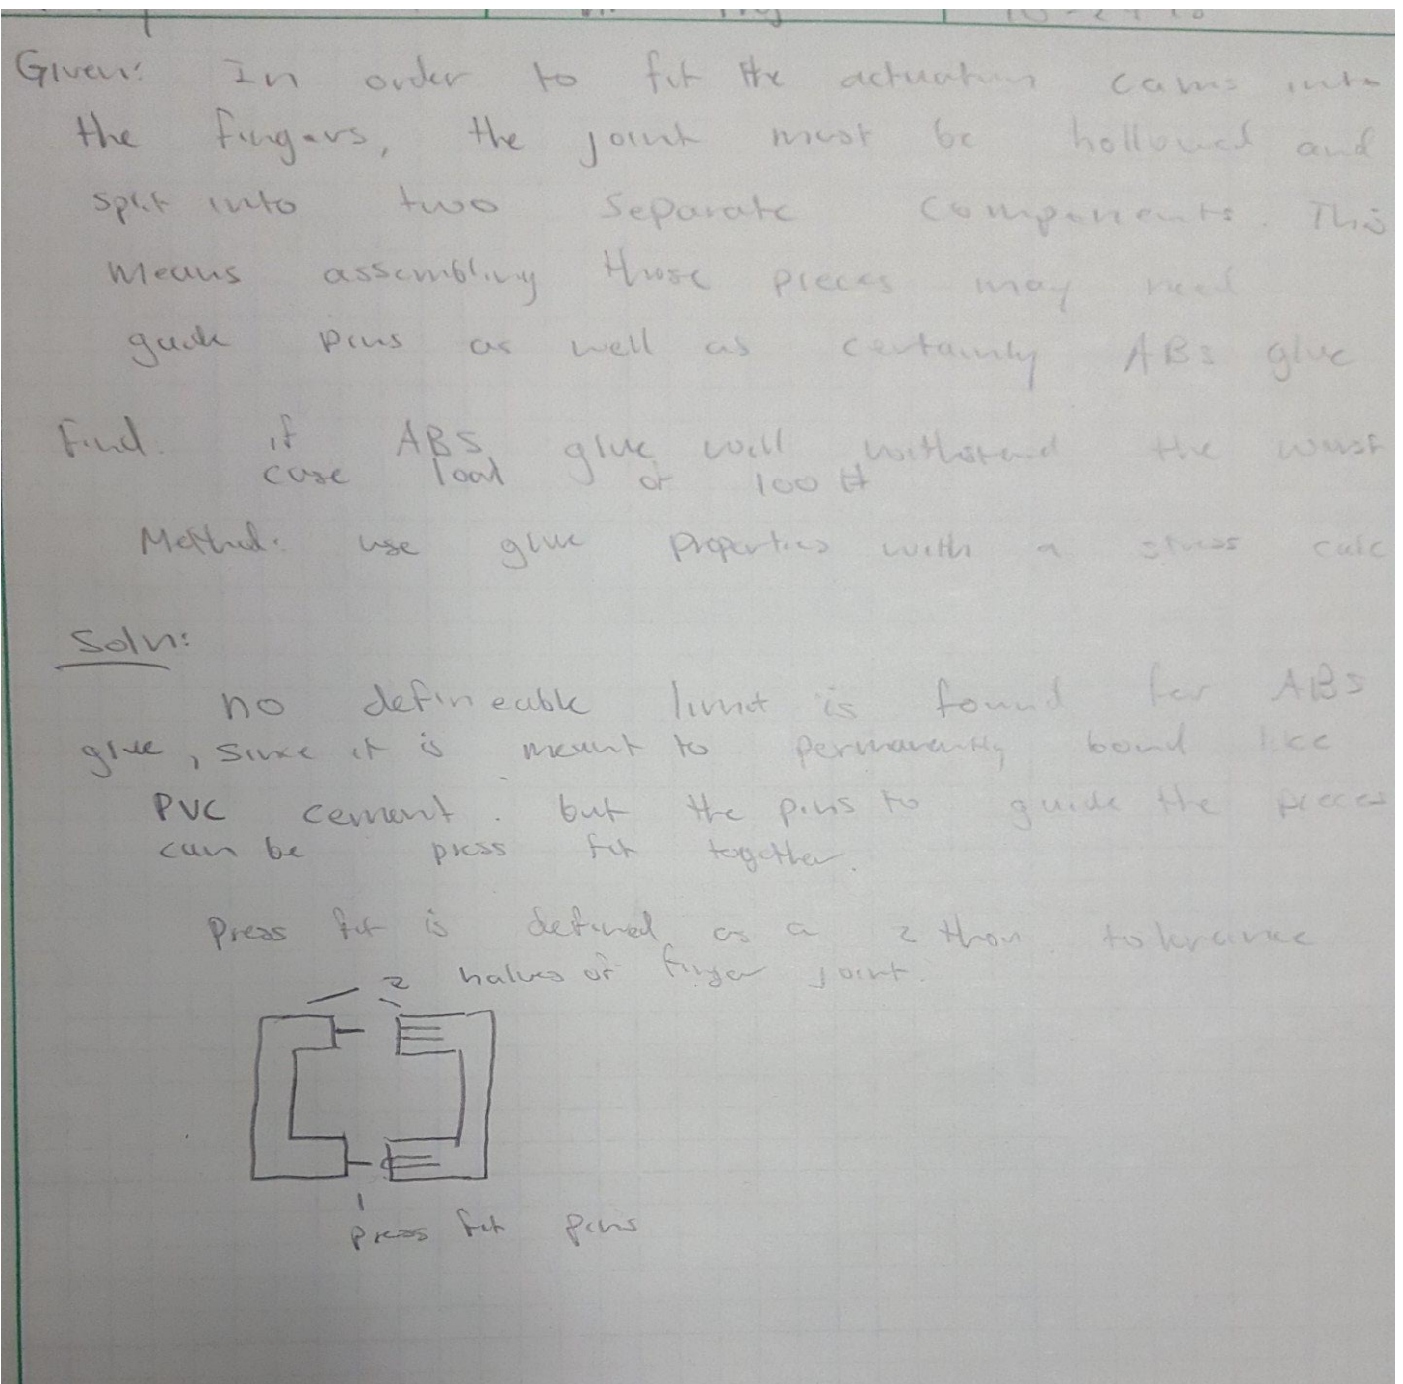 Given: In order to fit the actuation cams into
the fingers, the joint must be hollowed and
split into two separate components. This
means assembling those pieces may need
guide pins as well as certainly ABS glue
Find: if ABS glue will withstand the worst
case load of 100 #
Method: use glue properties with a stress calc
Soln:
no defineable limit is found for ABS
glue, since it is meant to permanently bond like
PVC cement. but the pins to guide the pieces
can be press fit together.
Press fit is defined as a 2 thou tolerance
2 halves of finger joint.
press fit pins